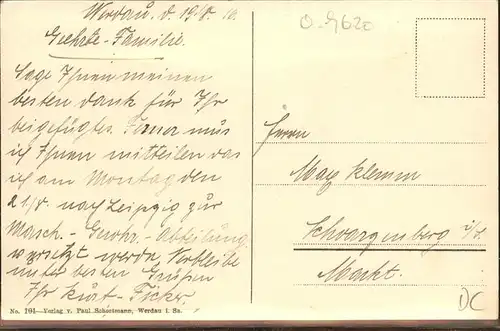 Werdau. d. 19/8. 10.
O-9620
Geehrte-Familie.
Sage Ihnen meinen
besten dank für Ihr
beigefügtes. Ferner mus
ich Ihnen mitteilen das
ich am Montag den
21/8. nach Leipzig zur
Masch.-Gewehr-Abteilung
versetzt werde, Verbleibe
unter besten Grüßen
Ihr Kurt-Ficker.
Herrn
Max Klemm
Schwarzenberg i/S.
Markt.
DC
No. 191 - Verlag v. Paul Schortmann, Werdau i. Sa.